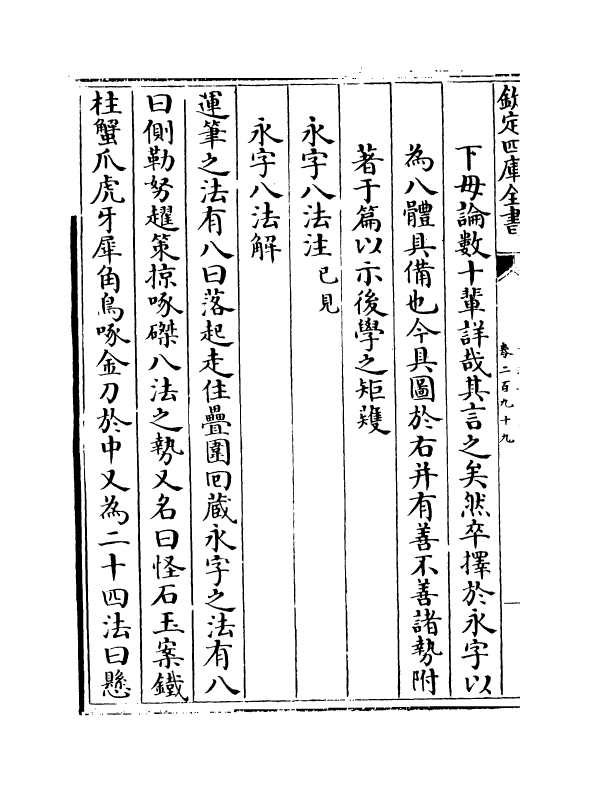 欽定四庫全書
卷二百九十九
下毋論數十輩詳哉其言之矣然卒擇於永字以
為八體具備也今具圖於右并有善不善諸勢附
著于篇以示後學之矩矱
永字八法注已見
永字八法解
運筆之法有八曰落起走住疊圍回藏永字之法有八
曰側勒努趯策掠啄磔八法之勢又名曰怪石玉案鐵
柱蟹爪虎牙犀角鳥啄金刀於中又為二十四法曰懸